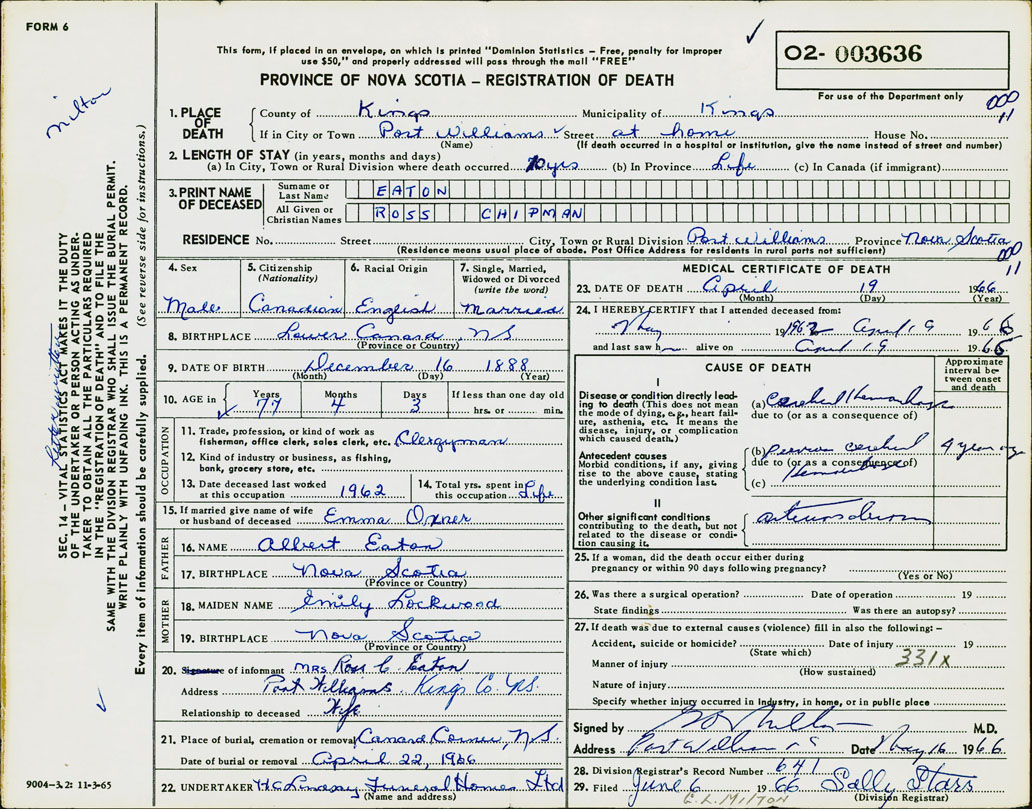 FORM 6
This form, if placed in an envelope, on which is printed "Dominion Statistics – Free, penalty for improper
use $50," and properly addressed will pass through the mail "FREE"
PROVINCE OF NOVA SCOTIA – REGISTRATION OF DEATH
02- 003636
For use of the Department only
000
11
Milton
1. PLACE OF DEATH County of Kings Municipality of Kings
If in City or Town Port Williams Street at home House No.
(Name) (If death occurred in a hospital or institution, give the name instead of street and number)
2. LENGTH OF STAY (in years, months and days)
(a) In City, Town or Rural Division where death occurred 70 yrs (b) In Province Life (c) In Canada (if immigrant)
3. PRINT NAME OF DECEASED Surname or Last Name EATON
All Given or Christian Names ROSS CHIPMAN
RESIDENCE No. Street City, Town or Rural Division Port Williams Province Nova Scotia
(Residence means usual place of abode. Post Office Address for residents in rural parts not sufficient)
000
11
4. Sex 5. Citizenship (Nationality) 6. Racial Origin 7. Single, Married, Widowed or Divorced (write the word)
Male Canadian English Married
8. BIRTHPLACE Lower Canard, N.S.
(Province or Country)
9. DATE OF BIRTH December 16 1888
(Month) (Day) (Year)
10. AGE in Years Months Days If less than one day old
77 4 3 hrs. or min.
OCCUPATION
11. Trade, profession, or kind of work as
fisherman, office clerk, sales clerk, etc. Clergyman
12. Kind of industry or business, as fishing,
bank, grocery store, etc.
13. Date deceased last worked at this occupation 1962 14. Total yrs. spent in this occupation Life
15. If married give name of wife
or husband of deceased Emma Oxner
FATHER
16. NAME Albert Eaton
17. BIRTHPLACE Nova Scotia
(Province or Country)
MOTHER
18. MAIDEN NAME Emily Lockwood
19. BIRTHPLACE Nova Scotia
(Province or Country)
20. Signature of informant MRS. Ross C. Eaton
Address Port Williams, Kings Co. N.S.
Relationship to deceased Wife
21. Place of burial, cremation or removal Canard Corner, N.S.
Date of burial or removal April 22, 1966
22. UNDERTAKER Funeral Homes Ltd
(Name and address)
MEDICAL CERTIFICATE OF DEATH
23. DATE OF DEATH April 19 1966
(Month) (Day) (Year)
24. I HEREBY CERTIFY that I attended deceased from:
May 1962 April 19 1966
and last saw h alive on April 19 1966
CAUSE OF DEATH
Approximate interval between onset and death
I
Disease or condition directly leading to death (This does not mean the mode of dying, e.g., heart failure, asthenia, etc. It means the disease, injury, or complication which caused death.)
(a) Cerebral Hemorrhage
due to (or as a consequence of)
Antecedent causes
Morbid conditions, if any, giving rise to the above cause, stating the underlying condition last.
(b) Previous cerebral 4 years ago
due to (or as a consequence of)
Hemorrhage
(c)
II
Other significant conditions
contributing to the death, but not related to the disease or condition causing it.
arteriosclerosis
25. If a woman, did the death occur either during
pregnancy or within 90 days following pregnancy?
(Yes or No)
26. Was there a surgical operation? Date of operation 19
State findings Was there an autopsy?
27. If death was due to external causes (violence) fill in also the following: –
Accident, suicide or homicide? Date of injury 19
(State which)
Manner of injury 331x
(How sustained)
Nature of injury
Specify whether injury occurred in industry, in home, or in public place
Signed by M.D.
Address Port Williams NS Date May 16 1966
28. Division Registrar's Record Number 641
29. Filed June 6 1966 Sally Starr
(Division Registrar)
G. L. MILTON
SEC. 14 – VITAL STATISTICS ACT MAKES IT THE DUTY
OF THE UNDERTAKER OR PERSON ACTING AS UNDER-
TAKER TO OBTAIN ALL THE PARTICULARS REQUIRED
IN THE "REGISTRATION OF DEATH" AND TO FILE THE
SAME WITH THE DIVISION REGISTRAR WHO SHALL ISSUE THE BURIAL PERMIT.
WRITE PLAINLY WITH UNFADING INK. THIS IS A PERMANENT RECORD.
Every item of information should be carefully supplied. (See reverse side for instructions.)
9004-3, 2: 11-3-65